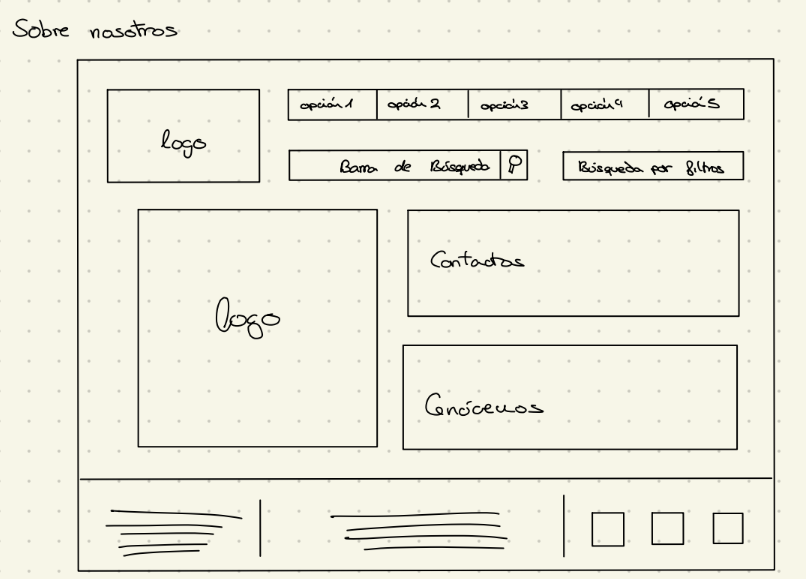 Sobre nosotros
logo
opción 1 opción 2 opción 3 opción 4 opción 5
Barra de Búsqueda
Búsqueda por filtros
logo
Contactos
Conócenos